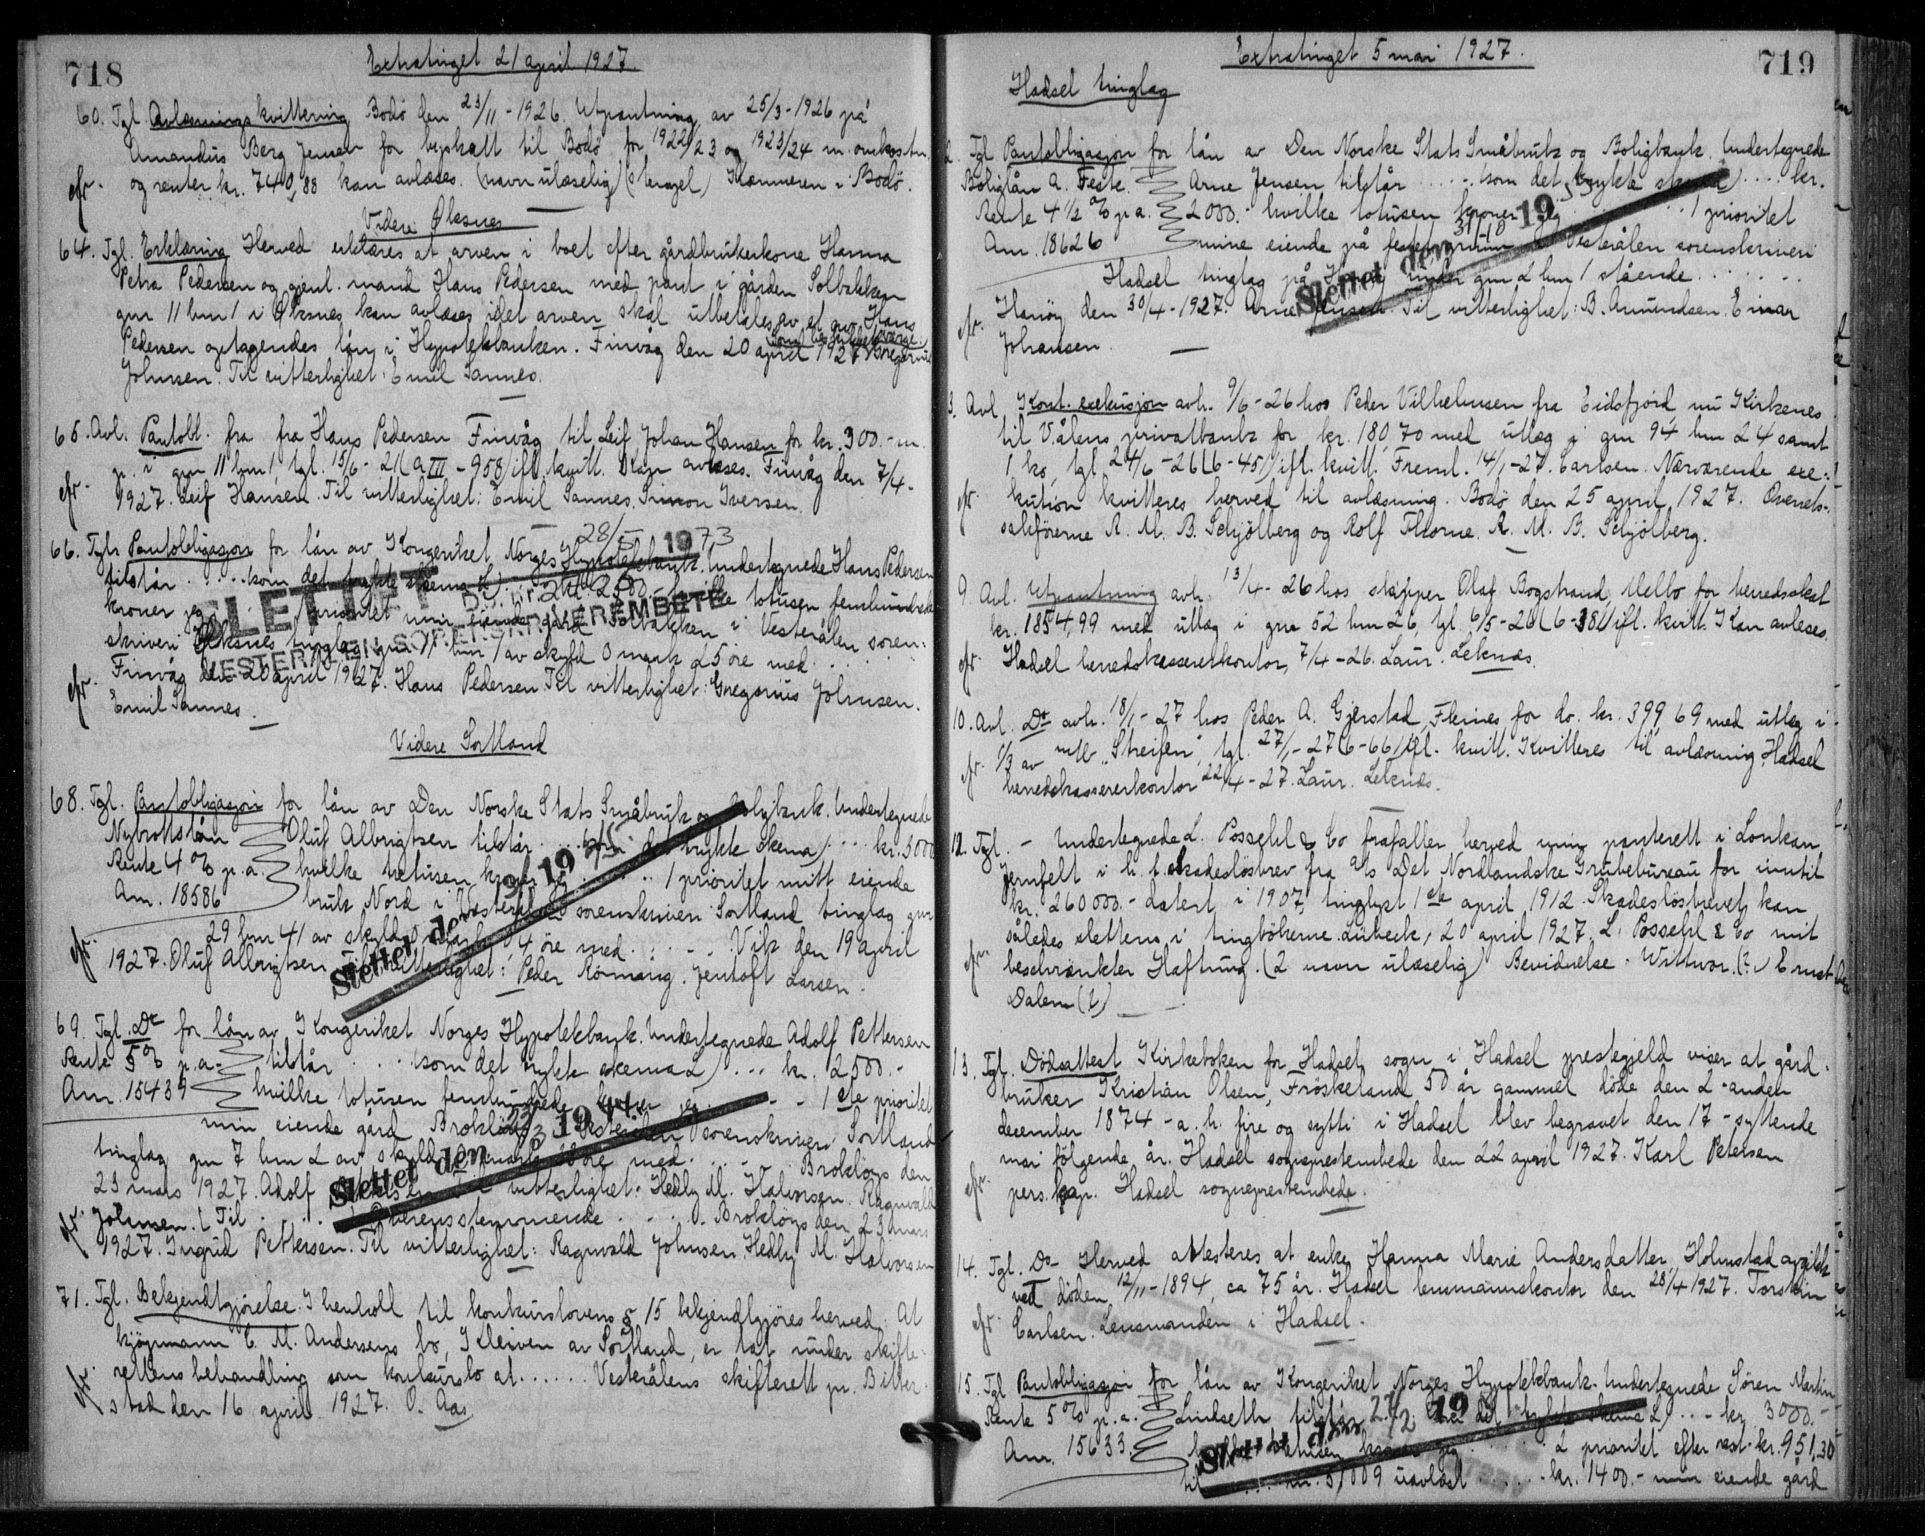 718
Extratinget 21 april 1927.
60. Tgl. Avlæsningskvittering Bodø den 23/11-1926. Utpantning av 25/3-1926 på
Amandus Berg Jensen for byskatt til Bodø for 1922/23 og 1923/24 m. omkostn.
og renter kr. 740,88 kan avlæses. (navn ulæselig) (stempel) Kæmneren i Bodø.
Videre Øksnes
64. Tgl. Erklæring Herved erklæres at arven i boet efter gårdbrukerkone Hanna
Petra Pedersen og gjenl. mand Hans Pedersen med pant i gården Solbakken
gnr 11 bnr 1 i Øksnes kan avlæses idet arven skal utbetales av et av Hans
Pedersen optagendes lån i Hypotekbanken. Finvåg den 20 april 1927 Gregorius
Johnsen. Til vitterlighet: Emil Sannes.
65. Avl. Pantobl. fra fra Hans Pedersen Finvåg til Leif Johan Hansen for kr. 300.- m.
p. i gnr 11 bnr 1, tgl. 15/6-21 (a III - 958) ifl. kvitt. Kan avlæses. Finvåg den 7/4-
1927. Leif Hansen. Til vitterlighet: Emil Sannes. Simon Iversen.
28/5 1973
66. Tgl. Pantobligasjon for lån av Kongeriket Norges Hypotekbank. Undertegnede Hans Pedersen
tilstår . . . . (som det trykte skema L) . . . kr. 2500.- hvilke totusen femhundrede
kroner jeg . . . . 1 prioritet min eiende gård Solbakken i Vesterålen soren-
skriveri Øksnes tinglag gnr 11 bnr 1 av skyld 0 mark 25 øre med . . . .
Finvåg den 20 april 1927. Hans Pedersen Til vitterlighet: Gregorius Johnsen.
Emil Sannes.
SLETTET
VESTERÅLEN SORENSKRIVEREMBETE
Videre Sortland
68. Tgl. Pantobligasjon for lån av Den Norske Stats Småbruk og Boligbank. Undertegnede
Nybrottslån Oluf Albrigtsen tilstår . . . (som det trykte skema) . . . . kr. 3000
Rente 4 % p.a. hvilke tretusen kroner jeg . . . . 1 prioritet mitt eiende
Anr. 18586 bruk Nord i Vesterålen sorenskriveri Sortland tinglag gnr
29 bnr 41 av skyld 0 mark 04 øre med . . . . Vik den 19 april
1927. Oluf Albrigtsen Til vitterlighet: Peder Rømang. Jentoft Larsen.
Slettet den 19
69. Tgl. Do for lån av Kongeriket Norges Hypotekbank. Undertegnede Adolf Pettersen
Rente 5 % p.a. tilstår . . . (som det trykte skema L) . . . kr. 2500.-
Anr. 15439 hvilke totusen femhundrede kroner jeg . . . - 1ste prioritet
min eiende gård Brokløys i Vesterålen sorenskriveri Sortland
tinglag gnr 7 bnr 2 av skyld mark øre med . . . . Brokløys den
23 mars 1927. Adolf Pettersen Til vitterlighet: Hedly M. Halvorsen. Ragnvald
Johnsen. (Til . . . . . overensstemmende . . . . Brokløys den 23 mars
1927. Ingrid Pettersen. Til vitterlighet: Ragnvald Johnsen. Hedly M. Halvorsen
Slettet den 19
71. Tgl. Bekjendtgjørelse. I henhold til konkurslovens § 15 bekjendtgjøres herved: At
kjøpmann C. M. Andersens bo, Kleiven av Sortland, er tat under skifte-
rettens behandling som konkursbo at . . . . . . Vesterålens skifterett pr. Bitter-
stad den 16 april 1927. O. Aas
719
Extratinget 5 mai 1927.
Hadsel tinglag
2. Tgl. Pantobligasjon for lån av Den Norske Stats Småbruk og Boligbank. Undertegnede
Boliglån A. Feste. Arne Jensen tilstår . . . . . (som det trykte skema) . . . . kr.
Rente 4 1/2 % p.a. 2000.- hvilke totusen kroner jeg . . . . . . 1 prioritet
Anr. 18626 mine eiende på festet grunn i Vesterålen sorenskriveri
Hadsel tinglag på Hanøy under gnr 2 bnr 1 stående . . . . . .
Hanøy den 30/4-1927. Arne Jensen. Til vitterlighet: B. Amundsen. Einar
Johansen.
Slettet den 31/10 19
3. Avl. Kont. exekusjon avh. 9/6-26 hos Peder Vilhelmsen fra Eidsfjord, nu Kirkenes
til V.ålens privatbank for kr. 180,70 med utlæg i gnr 94 bnr 24 samt
1 ko, tgl. 24/6-26 (6-451) ifl. kvitt. Freml. 14/1-27. Carlsen. Nærværende exe-
kution kvitteres herved til avlæsning. Bodø den 25 april 1927. Overrets-
sakførerne R. M. B. Schjølberg og Rolf Thorne. R. M. B. Schjølberg.
9. Avl. Utpantning avh. 13/4-26 hos skipper Olaf Bogstrand, Melbo for herredsskat
kr. 1854,99 med utlæg i gnr 52 bnr 26, tgl. 6/5-26 (6-381) ifl. kvitt. Kan avleses.
Hadsel herredskassererkontor, 7/4-26. Laur. Leknæs.
10. Avl. Do avh. 18/1-27 hos Peder A. Gjerstad, Flernes for do. kr. 399,69 med utlæg i
1/3 av m/b „Streifen", tgl. 27/1-27 (6-661) ifl. kvitt. Kvitteres til avlæsning. Hadsel
herredskassererkontor 22/4-27. Laur. Leknæs.
12. Tgl. - Undertegnede L. Possehl & Co frafaller herved min panterett i Lonkan
jernfelt i h. t. skadesløsbrev fra A/s Det Nordlandske Grubebureau for inntil
kr. 260000.- datert i 1907, tinglyst 1ste april 1912. Skadesløsbrevet kan
således slettes i tingbøkerne. Lübeck, 20 april 1927. L. Possehl & Co mit
beschränkter Haftung. (2 navn ulæselig) Bevidnelse. Wittwor. (?) Ernst
Dalem (?)
13. Tgl. Dødsattest Kirkeboken for Hadsel sogn i Hadsel prestegjeld viser at gård-
bruker Kristian Olsen, Frøskeland 50 år gammel døde den 2 - anden
december 1874 - a. h. fire og sytti i Hadsel blev begravet den 17 - syttende
mai følgende år. Hadsel sogneprestembede den 22 april 1927. Karl Petersen
pers. kap. Hadsel sogneprestembede.
14. Tgl. Do Herved attesteres at enke Hanna Marie Andersdatter, Holmstad avgikk
ved døden 12/11-1894, ca 75 år. Hadsel lensmannskontor den 28/4 1927. Torstein
Carlsen. Lensmanden i Hadsel.
15. Tgl. Pantobligasjon for lån av Kongeriket Norges Hypotekbank. Undertegnede Søren Martin
Rente 5 % p.a. Lindseth tilstår (som det trykte skema L) . . . - kr. 3000.-
Anr. 15633. hvilke tretusen kroner jeg . . . . . . 2 prioritet efter rest. kr. 951,30
til . . . . nr. 51009 uavløst . . . . . . kr. 1400.- min eiende gård
Slettet den 27/2 19